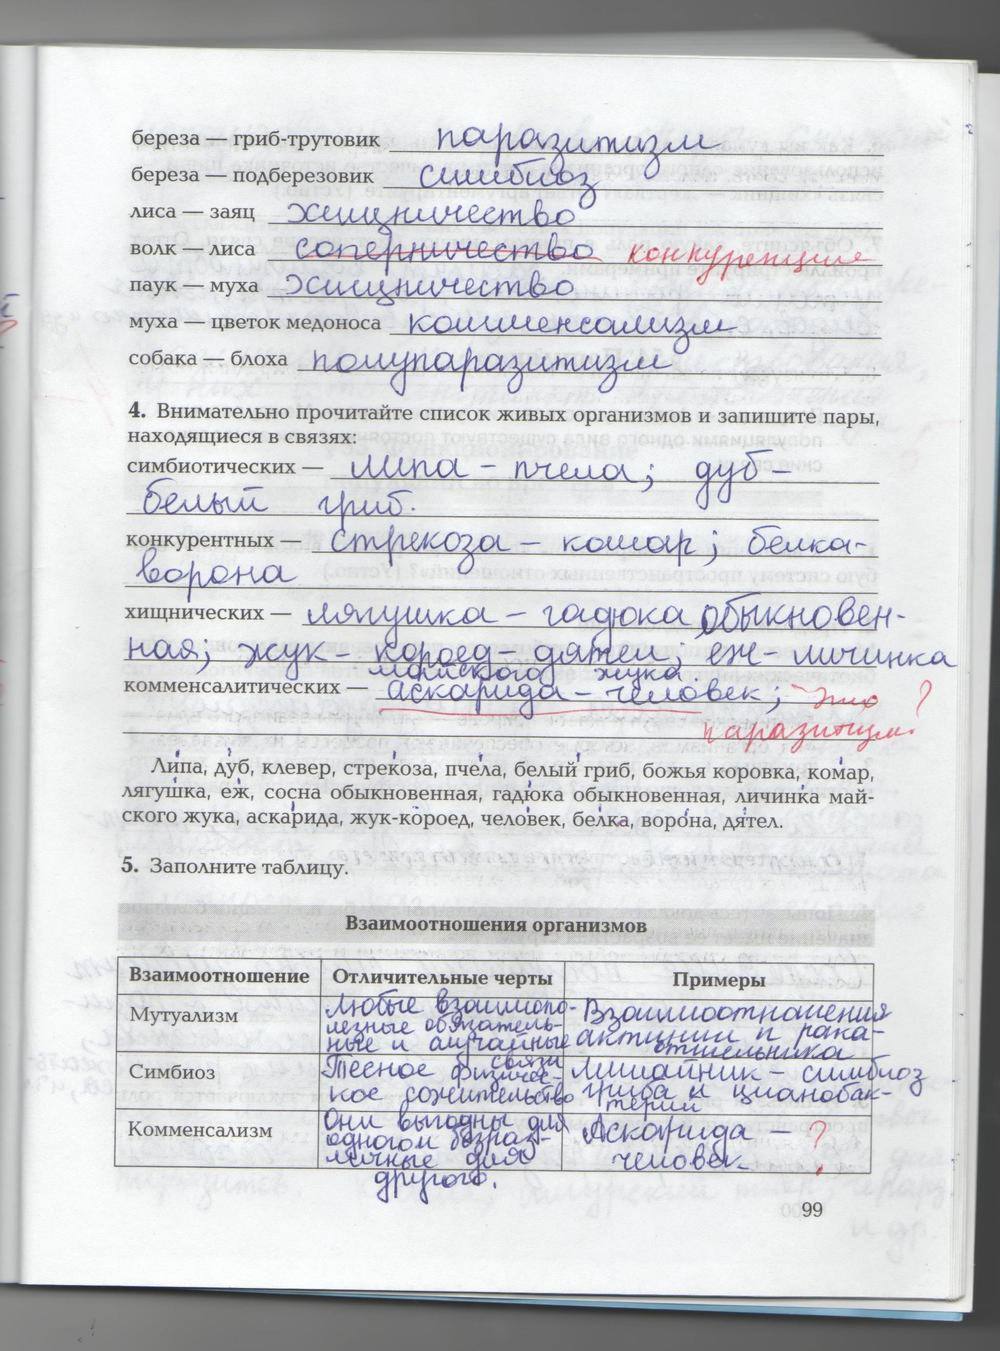 береза — гриб-трутовик паразитизм
береза — подберезовик симбиоз
лиса — заяц хищничество
волк — лиса соперничество конкуренция
паук — муха хищничество
муха — цветок медоноса комменсализм
собака — блоха полупаразитизм
4. Внимательно прочитайте список живых организмов и запишите пары,
находящиеся в связях:
симбиотических — липа - пчела; дуб -
белый гриб.
конкурентных — стрекоза - комар; белка-
ворона
хищнических — лягушка - гадюка обыкновен-
ная; жук - короед - дятел, еж - личинка
майского жука
комменсалитических — аскарида - человек; это ?
паразитизм
Липа, дуб, клевер, стрекоза, пчела, белый гриб, божья коровка, комар,
лягушка, еж, сосна обыкновенная, гадюка обыкновенная, личинка май-
ского жука, аскарида, жук-короед, человек, белка, ворона, дятел.
5. Заполните таблицу.
Взаимоотношения организмов
Взаимоотношение Отличительные черты Примеры
Мутуализм Любые взаимопо- Взаимоотношения
лезные обязатель- актинии и рака-
ные и случайные отшельника
связи
Симбиоз Тесное физичес- Лишайник - симбиоз
кое сожительство гриба и цианобак-
терий
Комменсализм Они выгодны для Аскарида - ?
одного безраз- человек
личные для
другого.
99